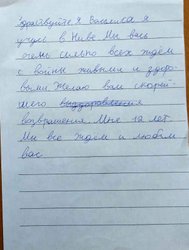 здраствуйте Я Василиса я
учусь в Киве Мы вас
очень сильно всех ждём
с войны живыми и здоро-
выми Желаю вам скорей
шего выздоровления
возвращения. Мне 12 лет.
Мы все ждем и любим
вас.